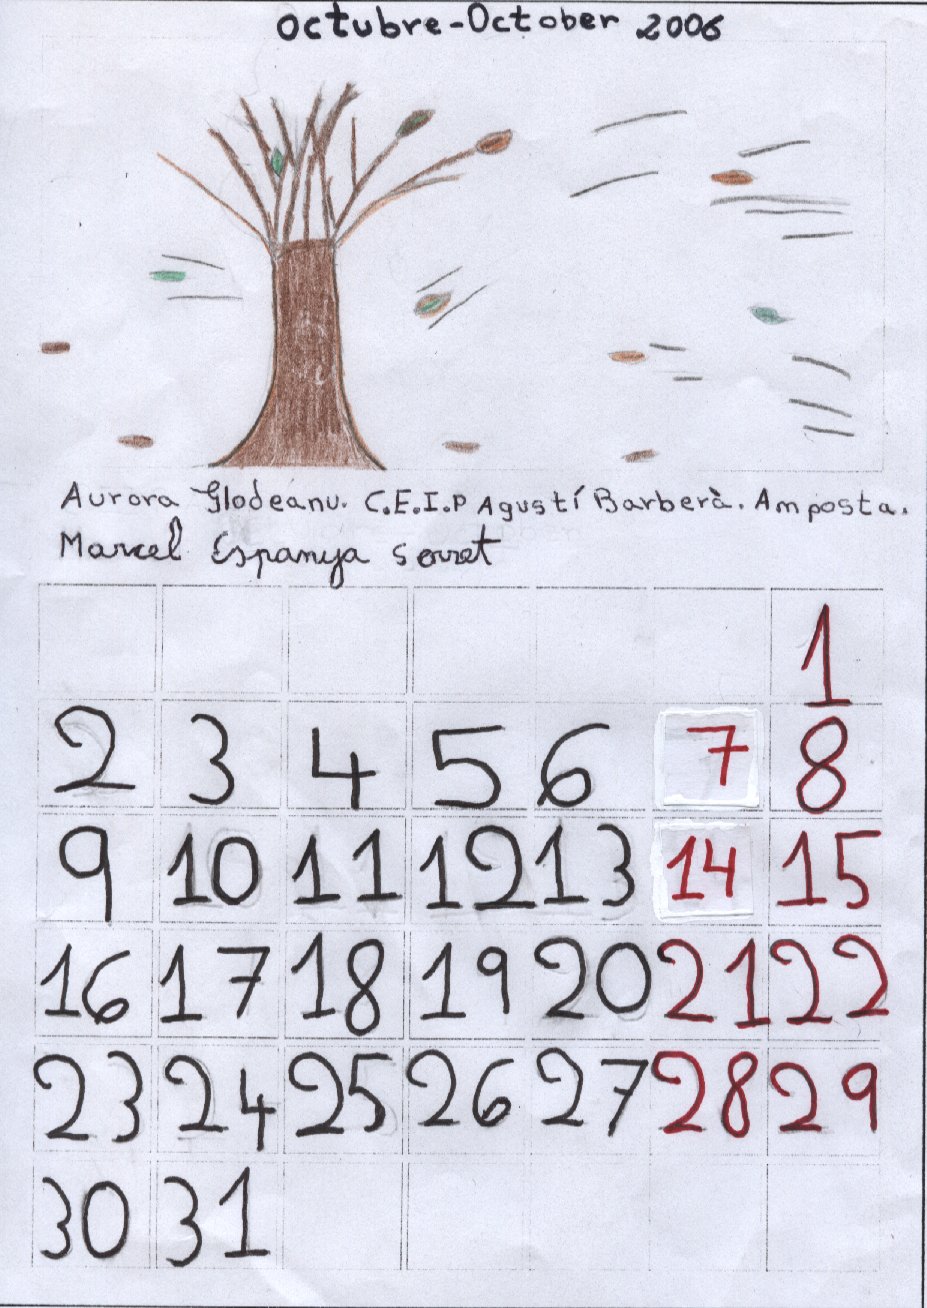 octubre-October 2006
Aurora Glodeanu. C.E.I.P Agustí Barberà. Amposta.
Marcel Espanya Sorret
1
2 3 4 5 6 7 8
9 10 11 12 13 14 15
16 17 18 19 20 21 22
23 24 25 26 27 28 29
30 31